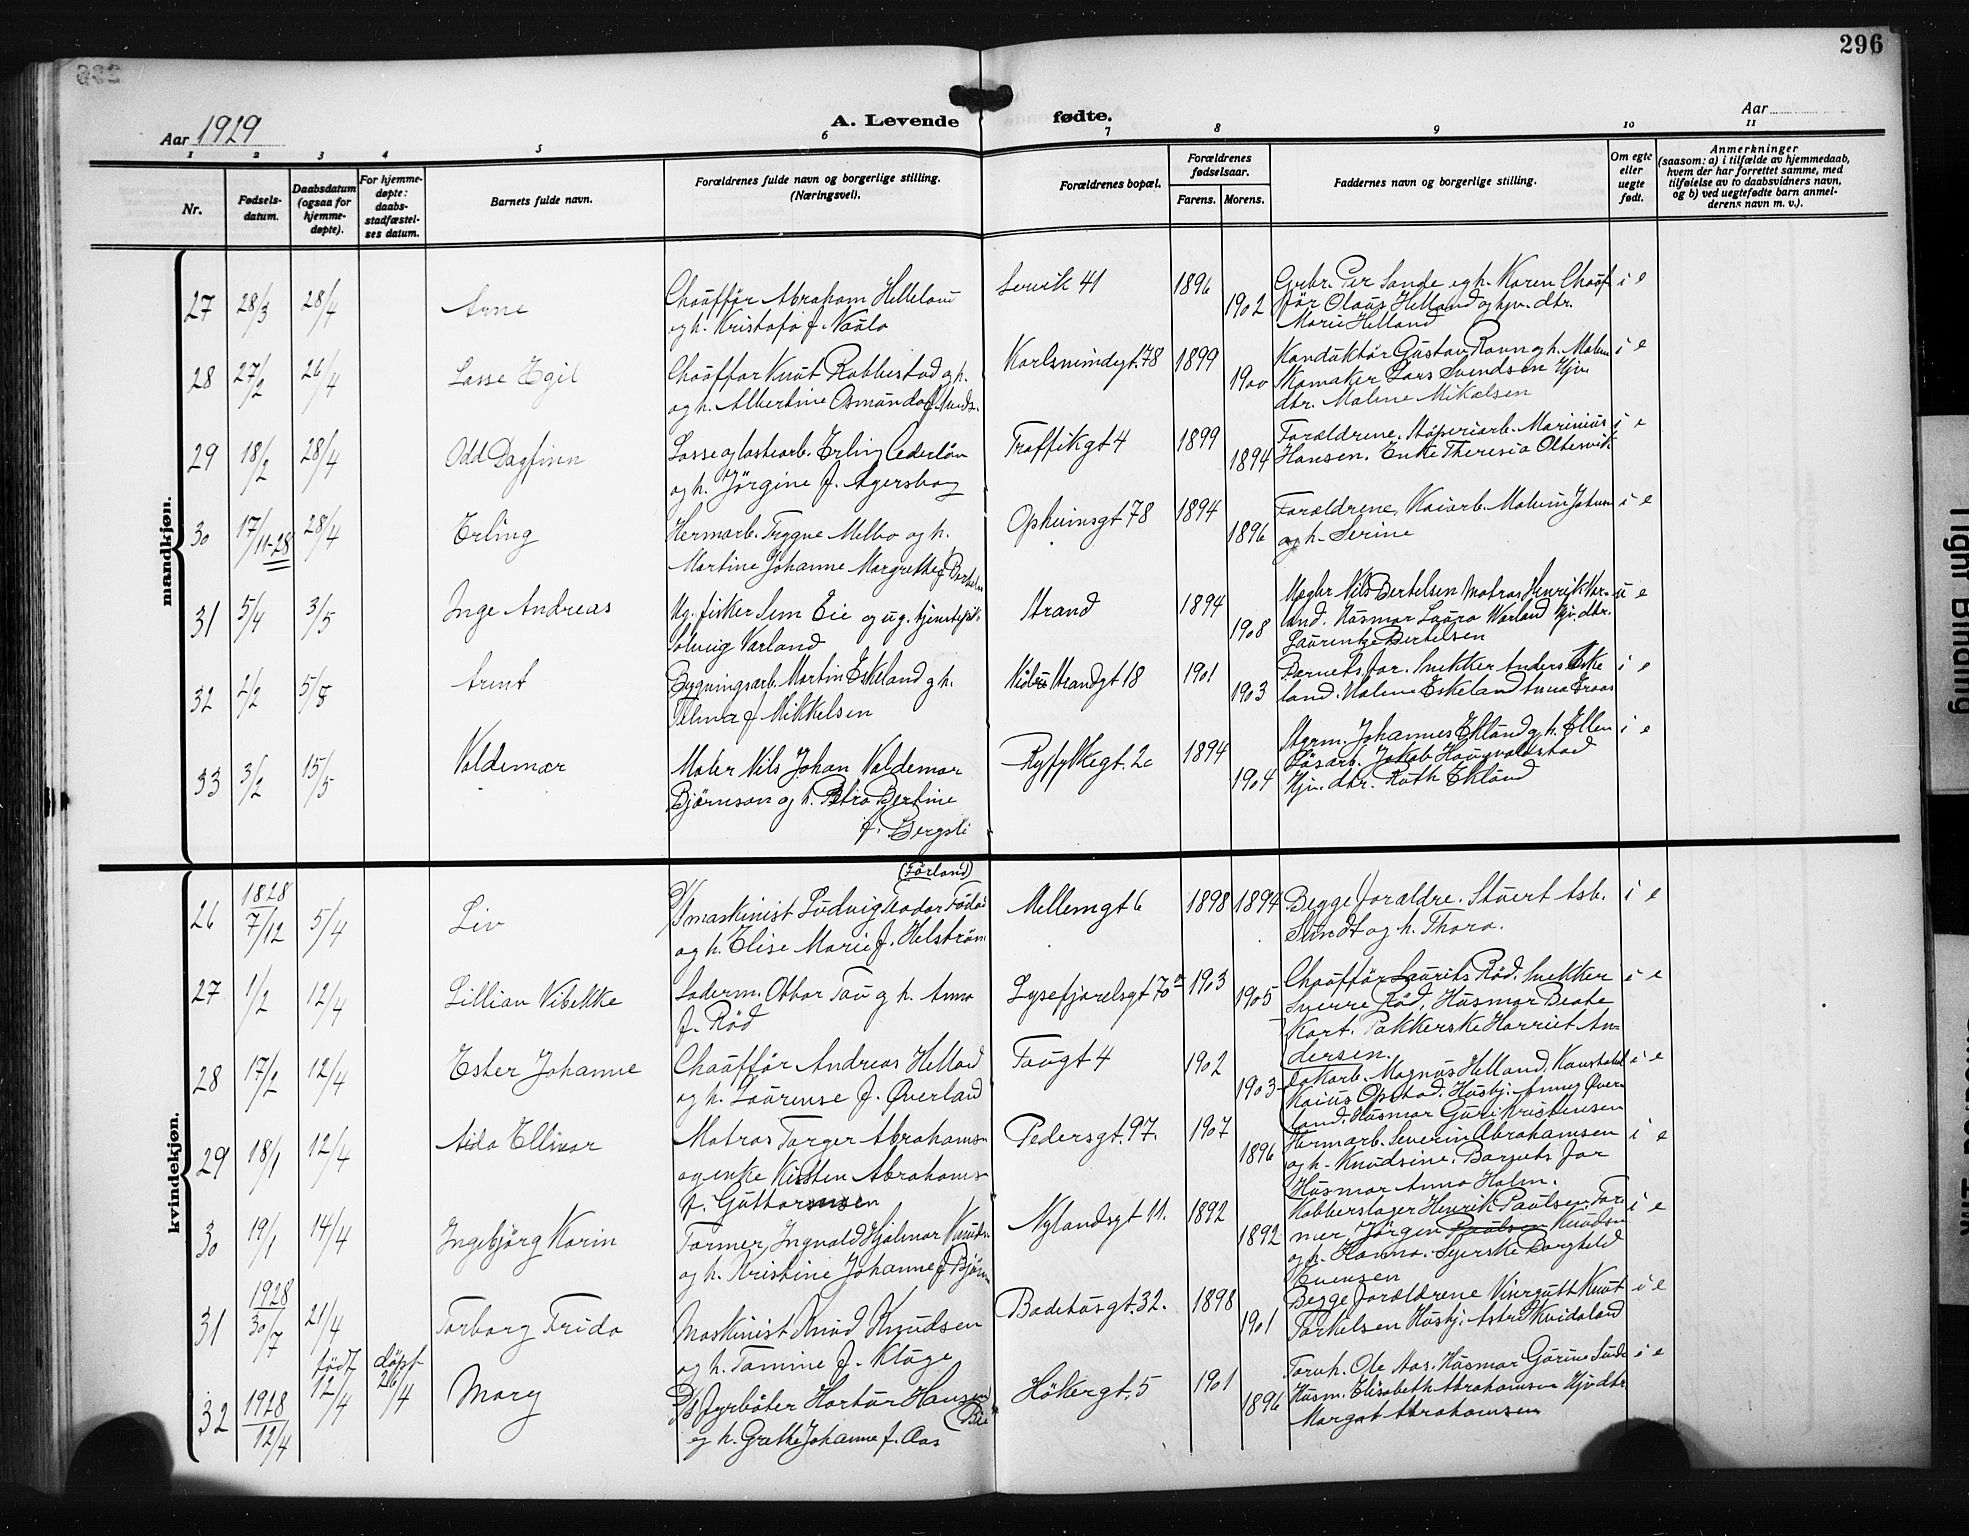 296
Aar 1929
A. Levende fødte.
Aar
1 2 3 4 5 6 7 8 9 10 11
Nr.
Fødsels-
datum.
Daabsdatum
(ogsaa for
hjemme-
døpte).
For hjemme-
døpte:
daabs-
stadfæstel-
ses datum.
Barnets fulde navn.
Forældrenes fulde navn og borgerlige stilling.
(Næringsvei).
Forældrenes bopæl.
Forældrenes
fødselsaar.
Farens. Morens.
Faddernes navn og borgerlige stilling.
Om egte
eller
uegte
født.
Anmerkninger
(saasom: a) i tilfælde av hjemmedaab,
hvem der har forrettet samme, med
tilføielse av to daabsvidners navn,
og b) ved uegtefødte barn anmel-
derens navn m. v.).
mandkjøn.
27 28/3 28/4 Arne
Chauffør Abraham Helleland
og h. Kristofa f. Naalo
1896 1902
Grbr. Per Sande og h. Karen Chauf
før Olaus Helland og hjv. dtr.
Marie Helland
i e
28 27/2 26/4 Lasse Egil
Chauffør Knut Rabbestad og h.
og h. Albertine Osmunda f.
Karlsmindegt. 78 1899 1900
Konduktør Gustav Ravn og h. Malene
Skomaker Lars Svendsen Hjv.
dtr. Malene Mikalsen
i e
29 18/2 28/4 Odd Dagfinn
Losse og lastearb. Erling Cederløv
og h. Jørgine f. Agersborg
Traffikgt 4 1899 1894
Forældrene. Støperiarb. Marinius
Hansen. Enke Theresia Oltesvik
i e
30 17/11-28 28/4 Erling
Hermarb. Trygve Melbo og h.
Martine Johanne Margrethe f. Bertelsen
Opheimsgt 78 1894 1896
Forældrene, Kaiarb. Malvin Johan
og h. Serine
i e
31 5/4 3/5 Inge Andreas
Ug. fisker Sem Eie og ug. tjenestepik.
Solveig Varland
Strand 1894 1908
Nils Bertelsen Matros Henrik Var-
land. Husmor Laura Varland Hjv. dtr.
Laurentze Bertelsen
u e
32 2/2 5/8 Arent
Bygningsarb. Martin Eskeland og h.
Telma f. Mikkelsen
Strandgt 18 1901 1903
Barnets far. Snekker Anders Eske
land. Malene Eskeland Anna
i e
33 3/2 15/5 Valdemar
Maler Nils Johan Valdemar
Bjørnson og h. Petra Bertine
f. Bergsli
Ryfylkegt. 2c 1894 1904
Styrm. Johannes Eklund og h. Ellen
Løsarb. Jakob Haugvaldstad
Hjv. dtr. Ruth Eklund
i e
kvindekjøn.
26 1828 7/12 5/4 Liv
(Førland)
maskinist Ludvig Teodor
og h. Elise Marie f. Helstrøm
Mellemgt 6 1898 1894
Begge forældre. Stuert Asb.
Sundt og h. Thora.
i e
27 1/2 12/4 Lillian Vibekke
Laderm. Ottar Tau og h. Anna
f. Rød
Lysefjordsgt 70a 1903 1905
Chauffør Laurits Rød. Snekker
Sverre Rød, Husmor Beate
Kort. Pakkerske Harriet An-
dersen.
i e
28 17/2 12/4 Ester Johanne
Chauffør Andreas Helland
og h. Laurense f. Øverland
Taugt 4 1902 1903
Lokarb. Magnus Helland, Konstabel
Kaius Opstad. Husbj. Anny Øver
land. Husmor Guri Kristensen
i e
29 18/1 12/4 Aida Ellinor
Matros Torger Abrahams-
og enke Kirsten Abrahams-
f. Guttormsen
Pedersgt. 97. 1907 1896
Hermarb. Severin Abrahamsen
og h. Knudsine. Barnets far
Husmor Anna Holm.
i e
30 19/1 14/4 Ingebjørg Karin
Formner, Ingvald Hjalmar Knuds
og h. Kristine Johanne f. Bjørn
Nylandsgt 11. 1892 1892
Kobberslager Henrik Paulsen For
mer, Jørgen Paulsen Knudsen
og h. Hanna. Syerske Borghild
Evensen
i e
31 1928 30/7 21/4 Torborg Frida
Maskinist Knud Knudsen
og h. Tomine f. Kluge
Badehusgt. 32. 1898 1901
Begge forældrene Visergutt Knut
Torkelsen Husbj. Astri Kvidaland
i e
32 1928 12/4 født 12/4 døpt 26/4 Mary
Fyrbøter Hartur Hansen
(Bie)
og h. Grethe Johanne f. Aas
Høkergt. 5 1901 1896
Torvh. Ole Aas. Husmor Gurine
Husm. Elisabeth Abrahamsen Hjv dtr
Margot Abrahamsen
i e
Tight Binding